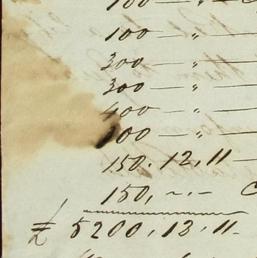 100 — "
100 — "
300 — "
300 — "
400 — "
100 — "
150. 12, 11 —
150, ~ . -
£ 5200, 13, 11.